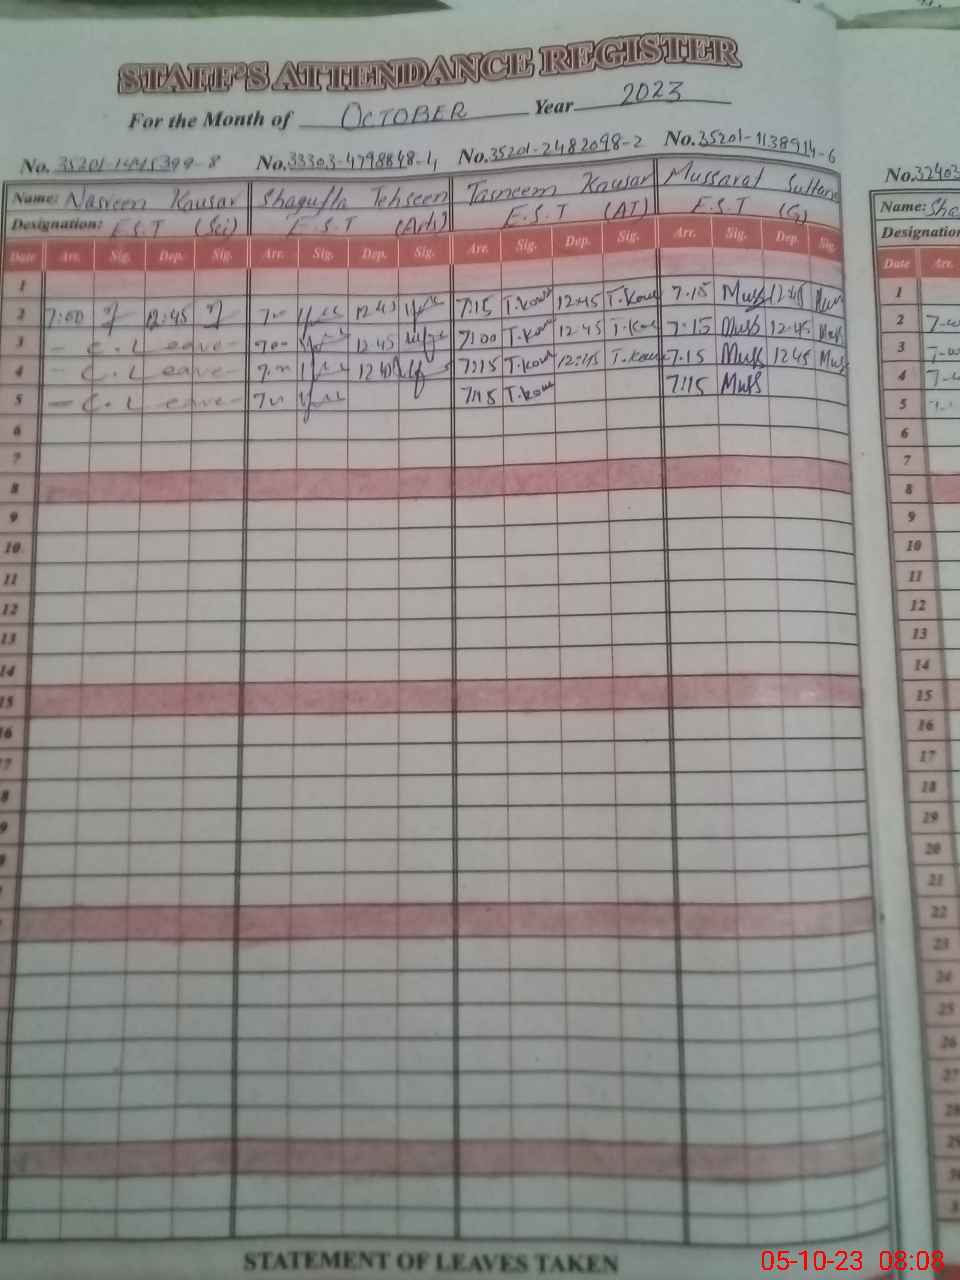 STAFF'S ATTENDANCE REGISTER
For the Month of OCTOBER Year 2023
No. 35201-1445399-8 No. 33303-4798848-4 No. 35201-2482098-2 No. 35201-1138914-6
Name: Nasreen Kausar Shagufta Tehseen Tasneem Kausar Mussarat Sultana
Designation: E.S.T (Sci) E.S.T (Arts) E.S.T (AT) E.S.T (G)
Date Arr. Sig. Dep. Sig. Arr. Sig. Dep. Sig. Arr. Sig. Dep. Sig. Arr. Sig. Dep. Sig.
1
2 7:00 12:45 12 45 7:15 T.Kou 12:45 T.Kou 7.15 Muss 12:45 Mus
3 - C. Leave - 7 00 12 45 7:00 T.Kou 12:45 T.Kou 7.15 Muss 12.45 Muss
4 - C. Leave - 7:15 T.Kou 12:45 T.Kou 7.15 Muss 12 45 Muss
5 - C. Leave - 7:15 T.Kou 7:15 Muss
6
7
8
9
10
11
12
13
14
15
16
17
8
9
STATEMENT OF LEAVES TAKEN
No. 32403
Name: Sha
Designation
Date Arr.
1
2
3
4
5
6
7
8
9
10
11
12
13
14
15
16
17
18
19
20
21
22
23
24
25
26
27
28
29
05-10-23 08:08